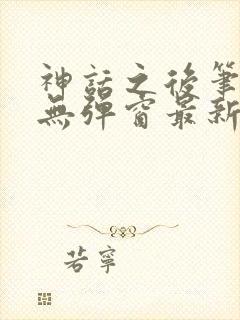 神話之後筆
無彈窗最新
若寧